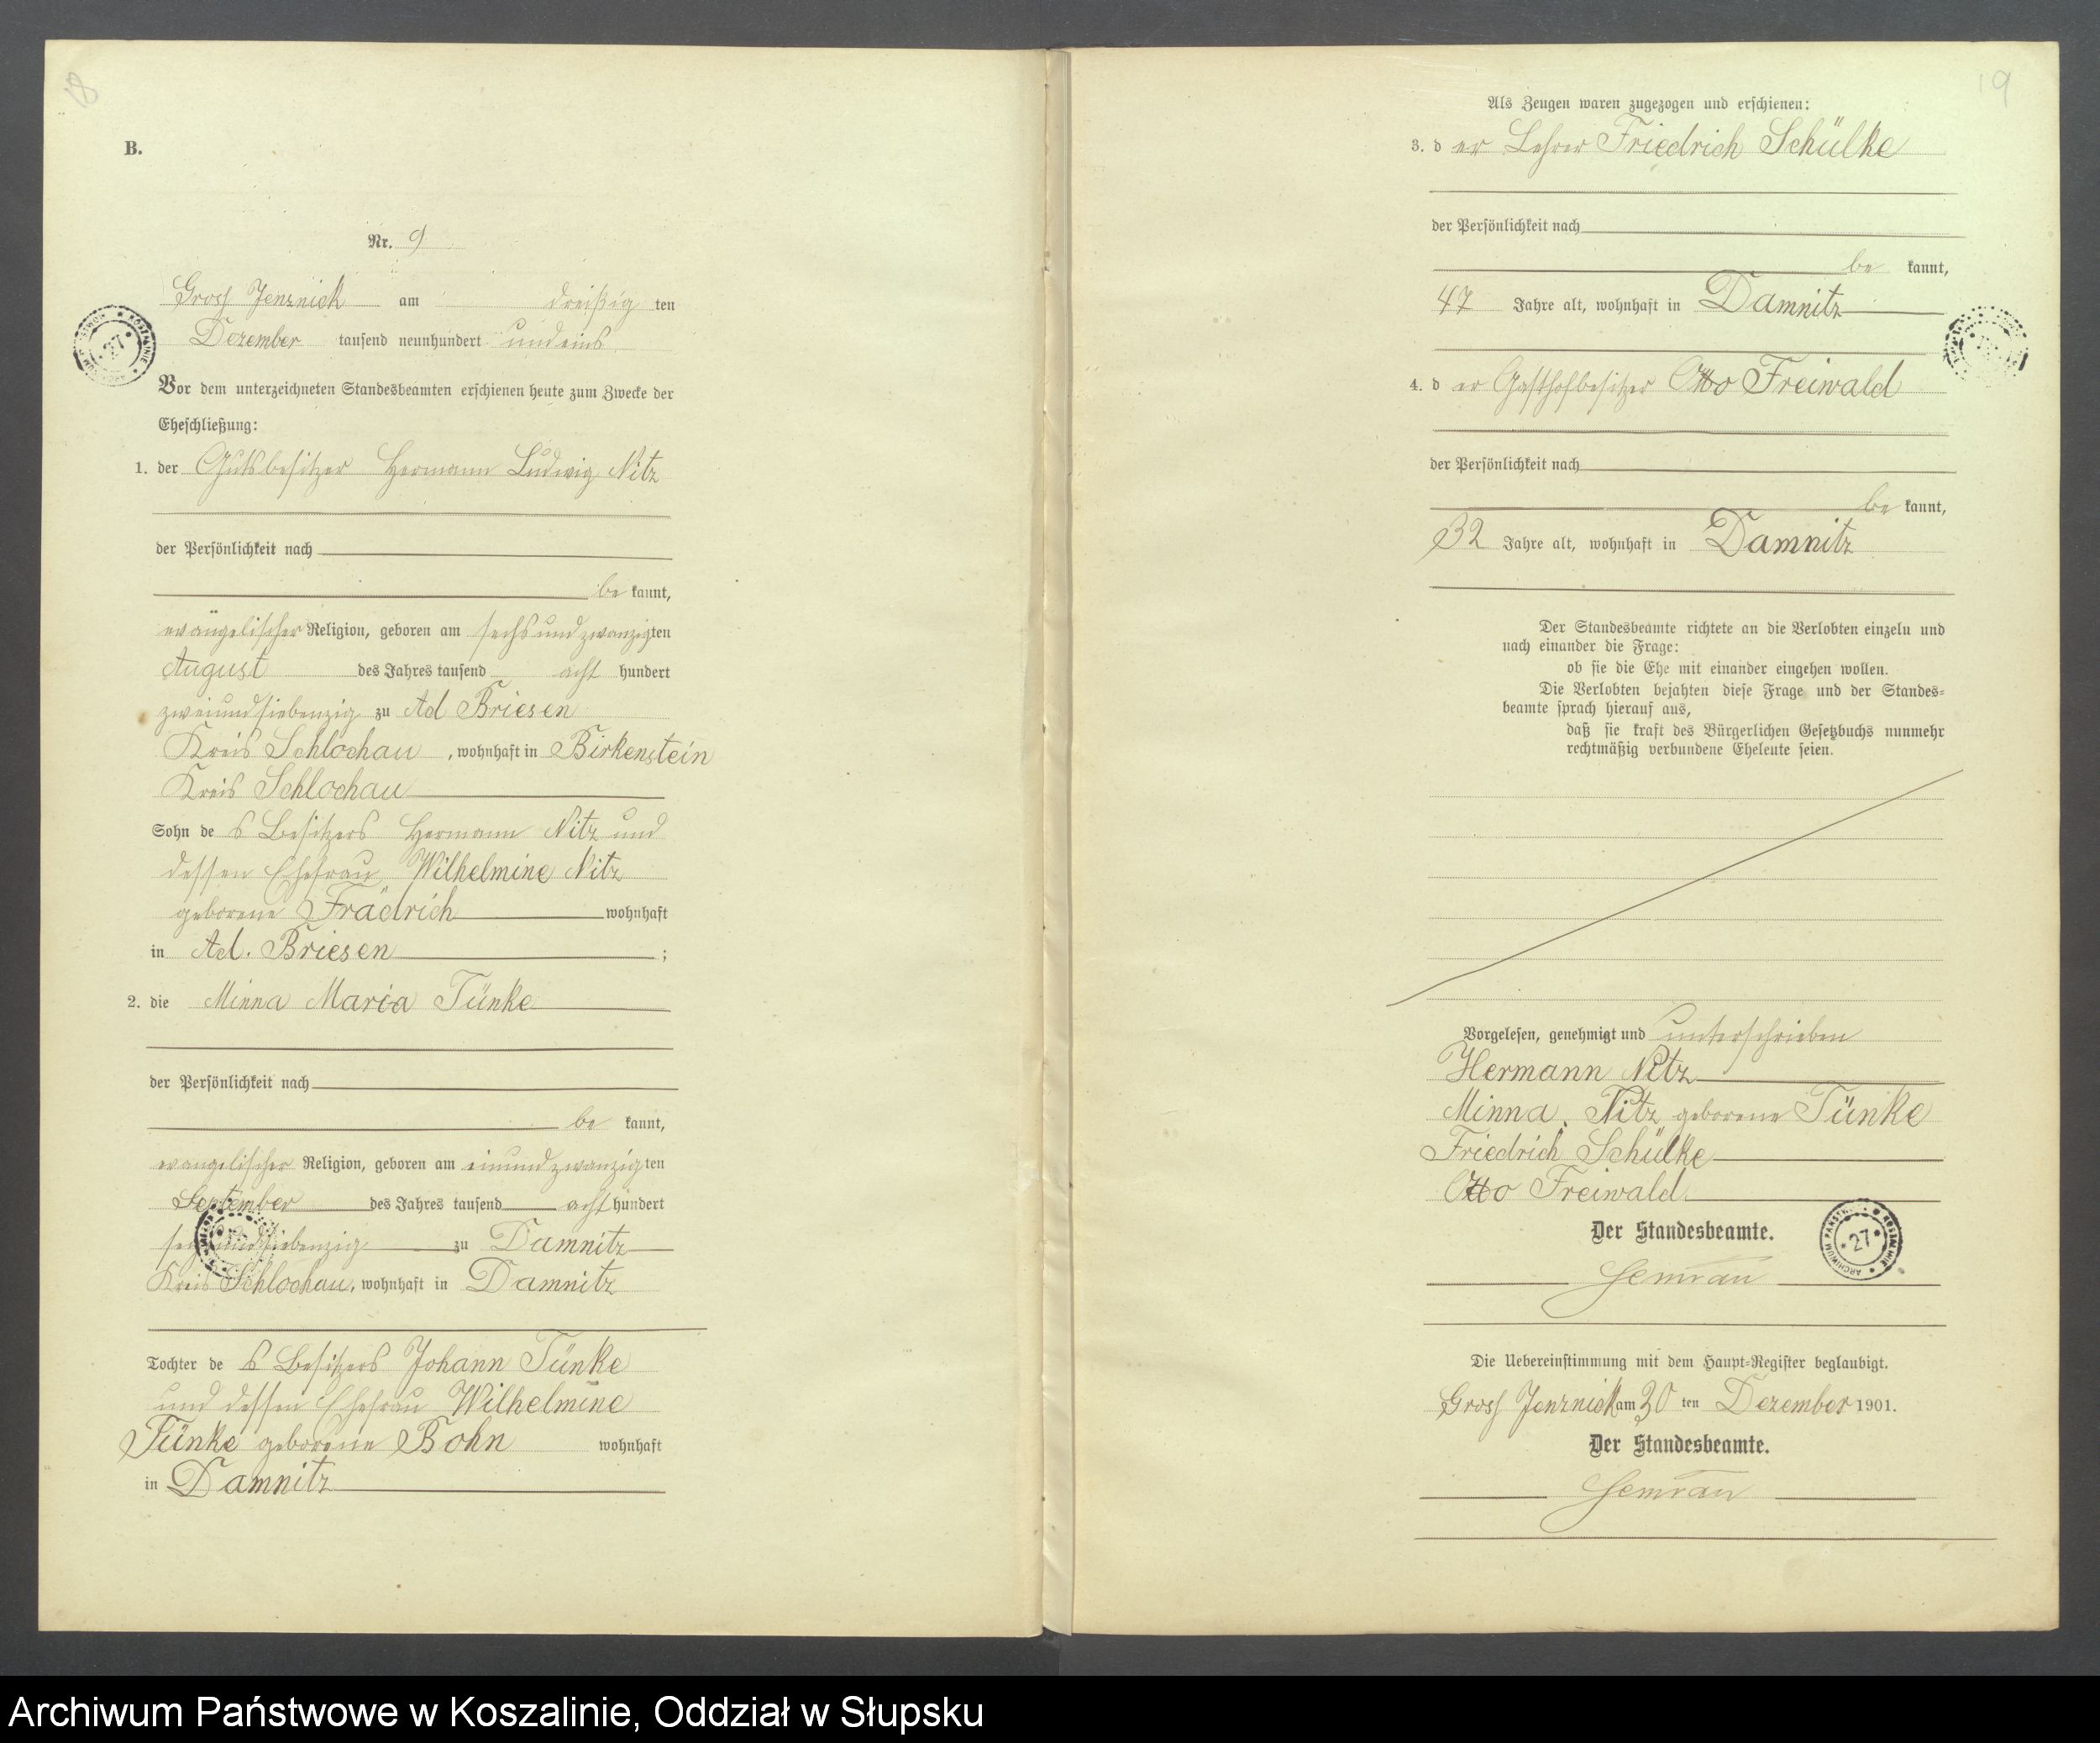 8
B.
Nr. 9
Gross Jenznick am dreißig ten
Dezember tausend neunhundert und eins
Vor dem unterzeichneten Standesbeamten erschienen heute zum Zwecke der
Eheschließung:
1. der Gutsbesitzer Hermann Ludwig Nitz
der Persönlichkeit nach
be kannt,
evangelischer Religion, geboren am sechsundzwanzigten
August des Jahres tausend acht hundert
zweiundsiebenzig zu Ad Briesen
Kreis Schlochau, wohnhaft in Birkenstein
Kreis Schlochau
Sohn de s Besitzers Hermann Nitz und
dessen Ehefrau Wilhelmine Nitz
geborene Frädrich wohnhaft
in Ad. Briesen ;
2. die Minna Maria Tünke
der Persönlichkeit nach
be kannt,
evangelischer Religion, geboren am einundzwanzigten
September des Jahres tausend acht hundert
sechsundsiebenzig zu Damnitz
Kreis Schlochau, wohnhaft in Damnitz
Tochter de s Besitzers Johann Tünke
und dessen Ehefrau Wilhelmine
Tünke geborene Bohn wohnhaft
in Damnitz
19
Als Zeugen waren zugezogen und erschienen:
3. d er Lehrer Friedrich Schülke
der Persönlichkeit nach
be kannt,
47 Jahre alt, wohnhaft in Damnitz
4. d er Gasthofbesitzer Otto Freiwald
der Persönlichkeit nach
be kannt,
32 Jahre alt, wohnhaft in Damnitz
Der Standesbeamte richtete an die Verlobten einzeln und
nach einander die Frage:
ob sie die Ehe mit einander eingehen wollen.
Die Verlobten bejahten diese Frage und der Standes-
beamte sprach hierauf aus,
daß sie kraft des Bürgerlichen Gesetzbuchs nunmehr
rechtmäßig verbundene Eheleute seien.
Vorgelesen, genehmigt und unterschrieben
Hermann Nitz
Minna Nitz geborene Tünke
Friedrich Schülke
Otto Freiwald
Der Standesbeamte.
Semrau
ARCHIWUM PAŃSTW. KOSZALINIE 27
Die Uebereinstimmung mit dem Haupt-Register beglaubigt.
Gross Jenznick am 30 ten Dezember 1901.
Der Standesbeamte.
Semrau
Archiwum Państwowe w Koszalinie, Oddział w Słupsku